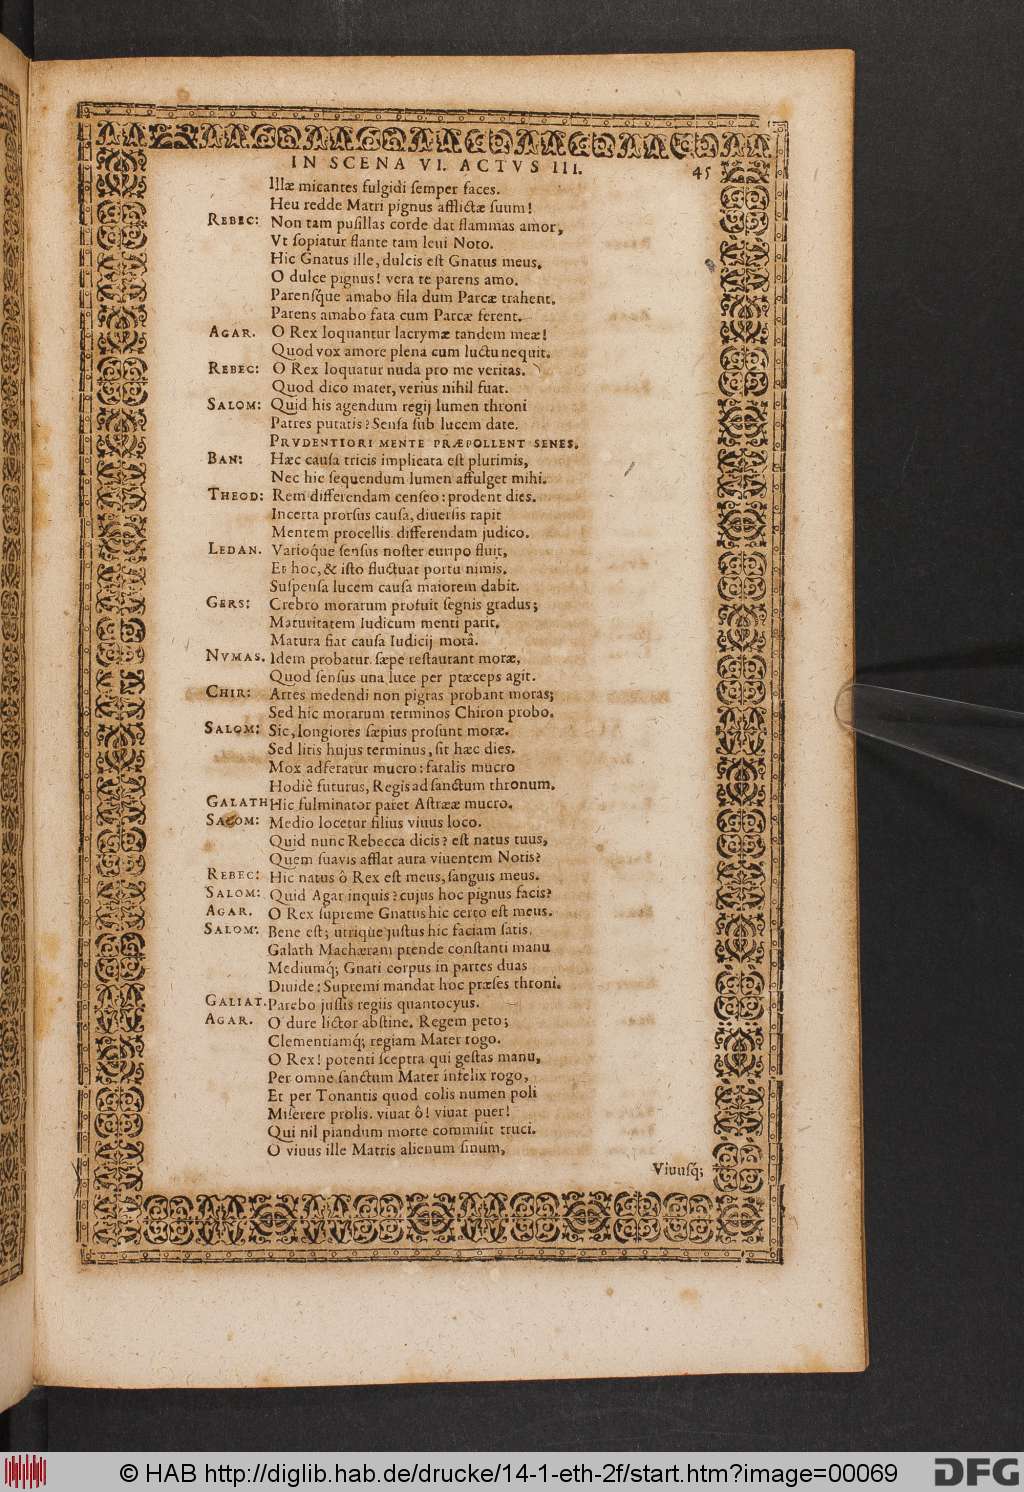 IN SCENA VI. ACTVS III. 45
Illæ micantes fulgidi ſemper faces.
Heu redde Matri pignus afflictæ ſuum!
REBEC: Non tam puſillas corde dat flammas amor,
Vt ſopiatur flante tam leui Noto.
Hic Gnatus ille, dulcis eſt Gnatus meus.
O dulce pignus! vera te parens amo.
Parenſque amabo fila dum Parcæ trahent.
Parens amabo fata cum Parcæ ferent.
AGAR. O Rex loquantur lacrymæ tandem meæ!
Quod vox amore plena cum luctu nequit.
REBEC: O Rex loquatur nuda pro me veritas.
Quod dico mater, verius nihil fuat.
SALOM: Quid his agendum regij lumen throni
Patres putatis? Senſa ſub lucem date.
PRVDENTIORI MENTE PRÆPOLLENT SENES.
BAN: Hæc cauſa tricis implicata eſt plurimis,
Nec hic ſequendum lumen affulget mihi.
THEOD: Rem differendam cenſeo: prodent dies.
Incerta prorſus cauſa, diuerſis rapit
Mentem procellis. differendam judico.
LEDAN. Varioque ſenſus noſter euripo fluit,
Et hoc, & iſto fluctuat portu nimis.
Suſpenſa lucem cauſa maiorem dabit.
GERS: Crebro morarum profuit ſegnis gradus;
Maturitatem Iudicum menti parit.
Matura fiat cauſa Iudicij morâ.
NVMAS. Idem probatur. ſæpe reſtaurant moræ,
Quod ſenſus una luce per præceps agit.
CHIR: Artes medendi non pigras probant moras;
Sed hic morarum terminos Chiron probo.
SALOM: Sic, longiores ſæpius proſunt moræ.
Sed litis hujus terminus, ſit hæc dies.
Mox adferatur mucro: fatalis mucro
Hodiè futurus, Regis ad ſanctum thronum.
GALATH Hic fulminator paret Aſtrææ mucro.
SALOM: Medio locetur filius viuus loco.
Quid nunc Rebecca dicis? eſt natus tuus,
Quem ſuavis afflat aura viuentem Notis?
REBEC: Hic natus ô Rex eſt meus, ſanguis meus.
SALOM: Quid Agar inquis? cujus hoc pignus facis?
AGAR. O Rex ſupreme Gnatus hic certo eſt meus.
SALOM: Bene eſt; utrique juſtus hic faciam ſatis.
Galath Machæram prende conſtanti manu
Mediumq́; Gnati corpus in partes duas
Diuide: Supremi mandat hoc præſes throni.
GALIAT. Parebo juſſis regiis quantocyus.
AGAR. O dure lictor abſtine. Regem peto;
Clementiamq́; regiam Mater rogo.
O Rex! potenti ſceptra qui geſtas manu,
Per omne ſanctum Mater infelix rogo,
Et per Tonantis quod colis numen poli
Miſerere prolis. viuat ô! viuat puer!
Qui nil piandum morte commiſit truci.
O viuus ille Matris alienum ſinum,
Viuuſq́;
© HAB http://diglib.hab.de/drucke/14-1-eth-2f/start.htm?image=00069
DFG